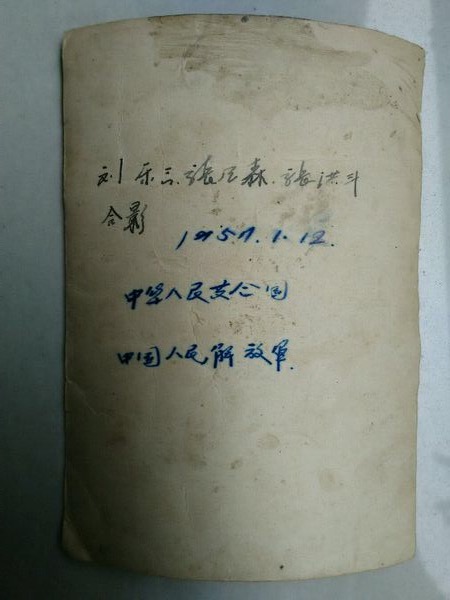 刘乐三.張足森.張洪斗
合影
1957.1.12.
中华人民共合国
中国人民解放軍.